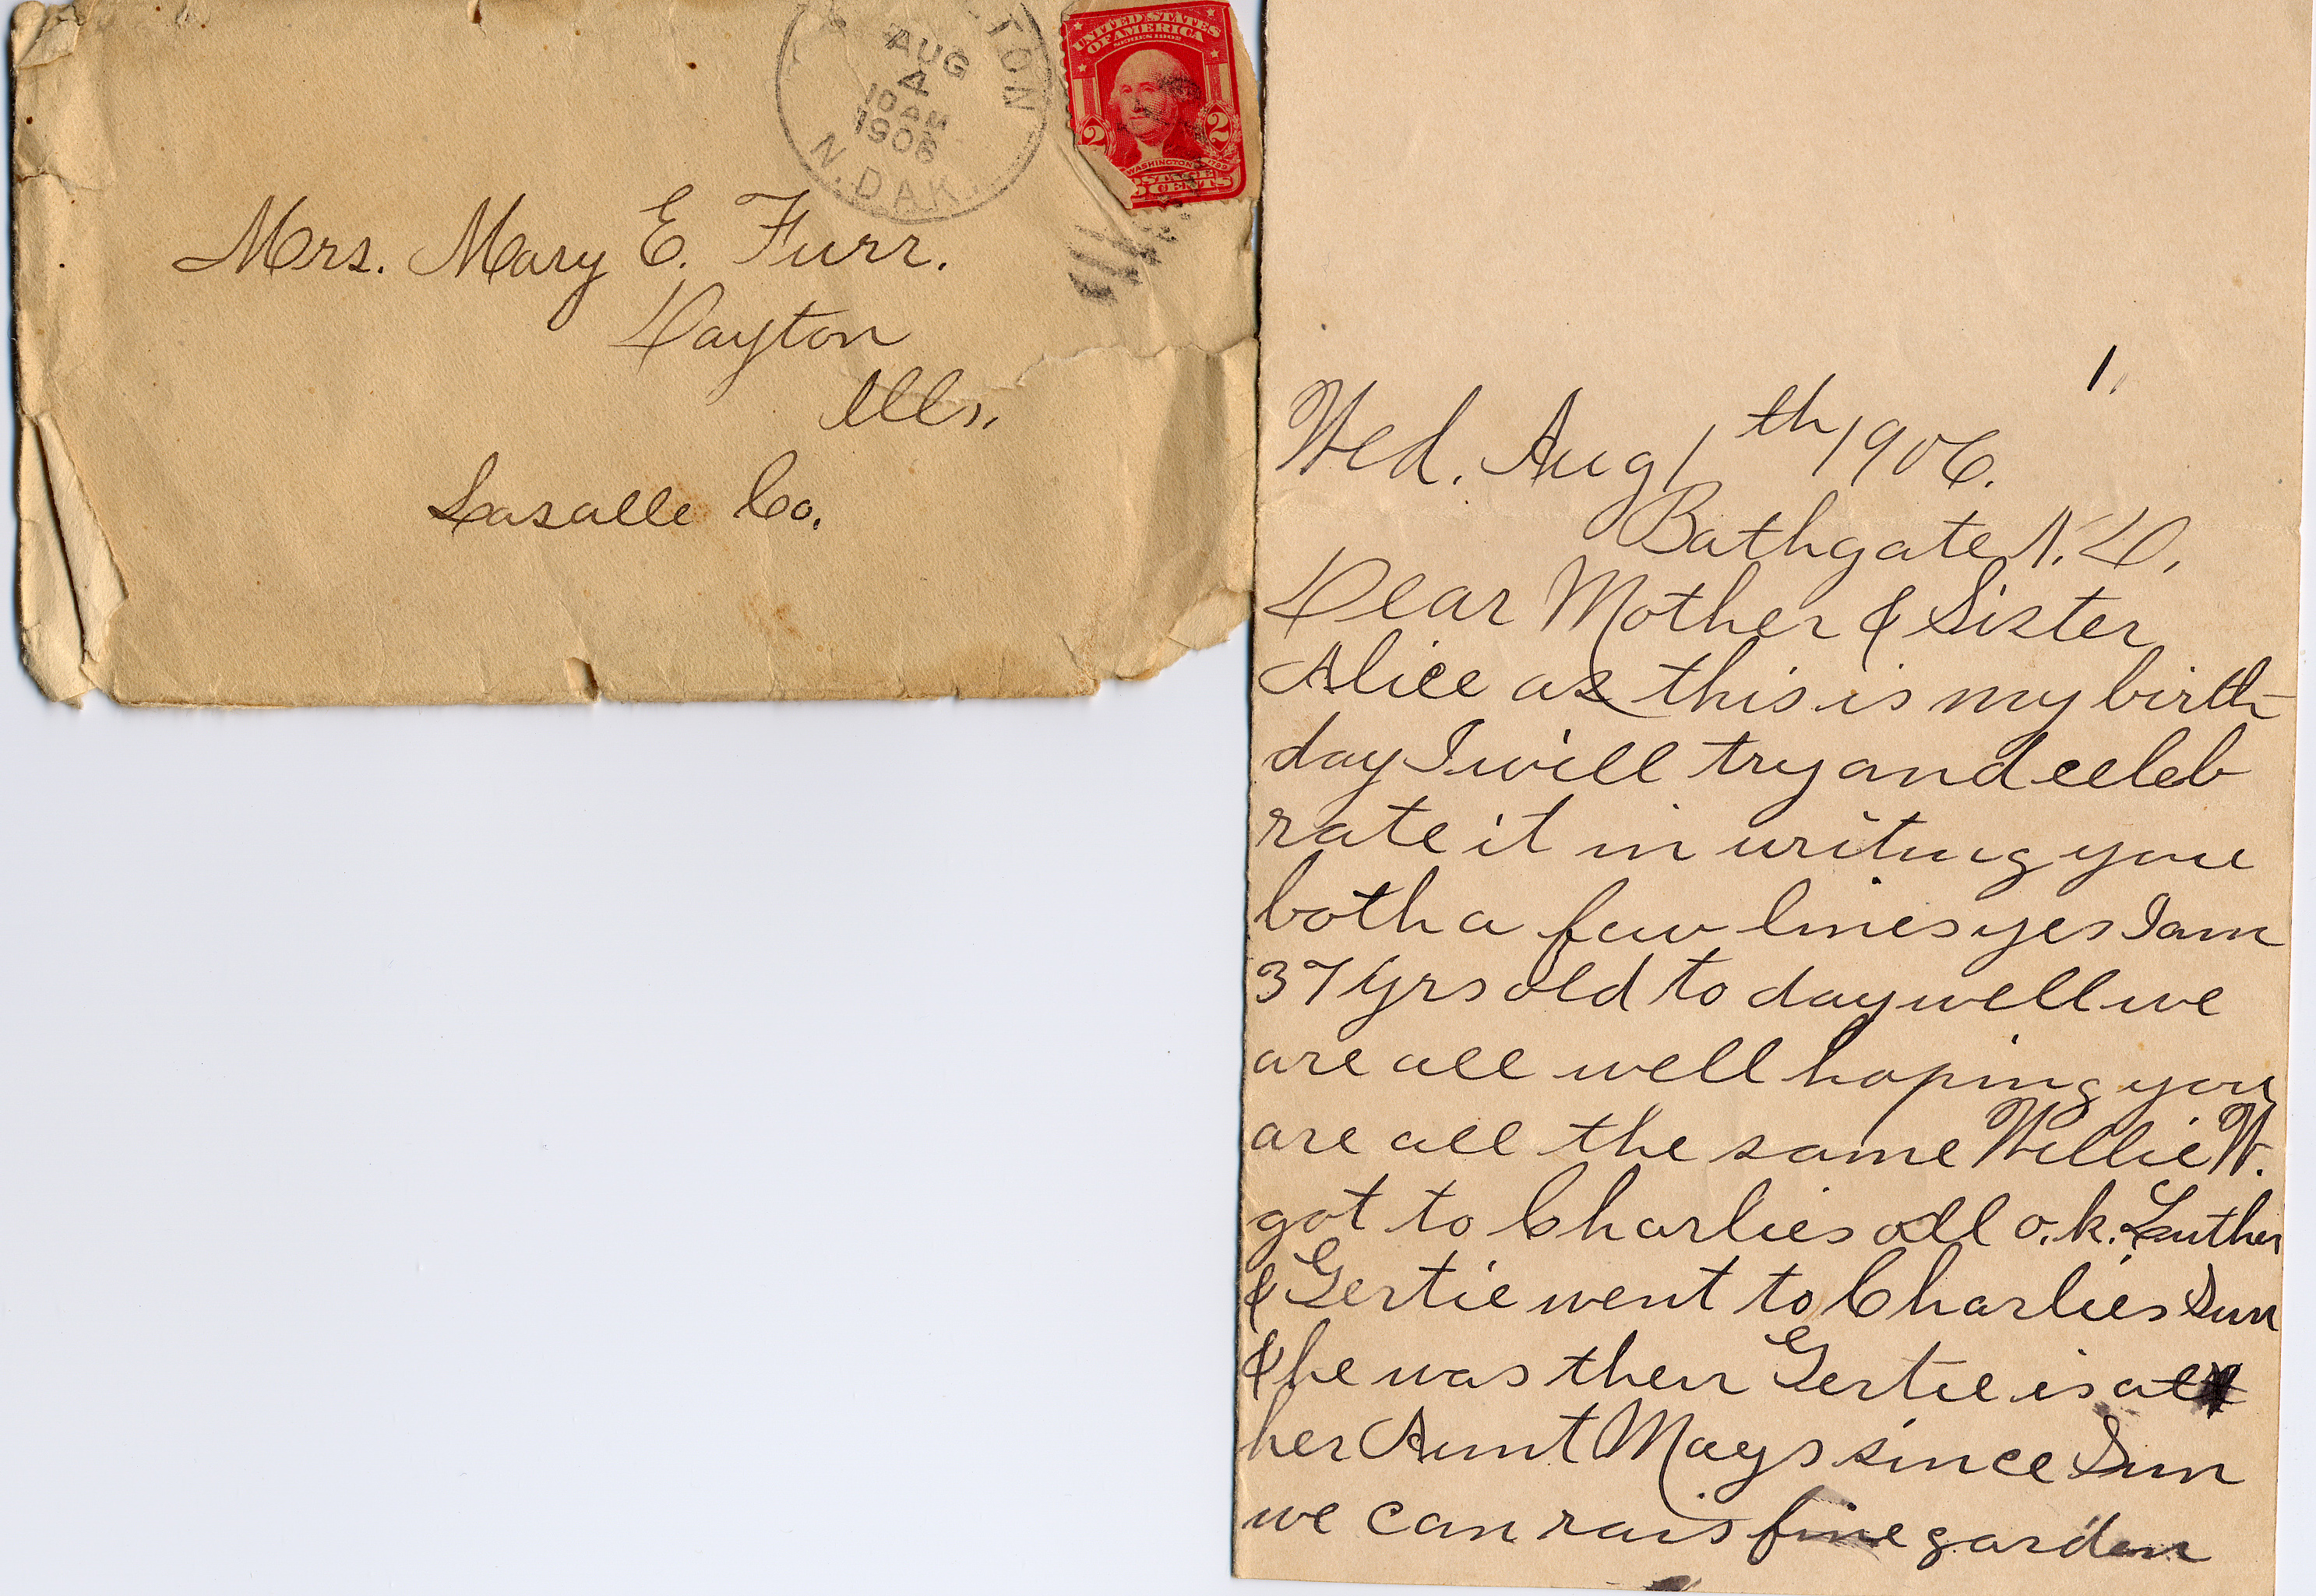 TON
AUG
4
10 AM
1906
N. DAK.
UNITED STATES
OF AMERICA
SERIES 1902
2 2
WASHINGTON
CENTS
Mrs. Mary E. Furr.
Dayton
Ills.
Lasalle Co.
1,
Wed. Aug 1th 1906.
Bathgate, N. D.
Dear Mother & Sister
Alice as this is my birth
day I will try and celeb
rate it in writing you
both a few lines yes I am
37 yrs old to day well we
are all well hoping you
are all the same Willie W.
got to Charlies all o.k. Luther
& Gertie went to Charlies Sun
& he was then Gertie is at
her Aunt Mays since Sun
we can rais fine garden